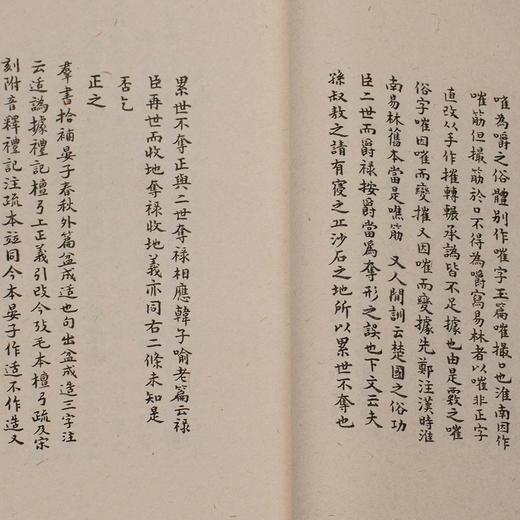 嗺為嚼之俗體別作嗺字玉篇嗺撮口也淮南因作
嗺筋但撮筋於口不得為嚼寫易林者以嗺非正字
直改从手作摧轉輾承譌皆不足據也由是覈之嗺
俗字嗺因嗺而變摧又因嗺而變據先鄭注漢時淮
南易林舊本當是噍筋 又人間訓云楚國之俗功
臣二世而爵祿按爵當爲奪形之誤也下文云夫
孫叔敖之請有寑之丘沙石之地所以累世不奪也
累世不奪正與二世奪祿相應韓子喻老篇云祿
臣再世而收地奪祿收地義亦同右二條未知是
否乞
正之
羣書拾補晏子春秋外篇盆成适也句出盆成造三字注
云适譌據禮記檀弓上正義引改今攷毛本檀弓疏及宋
刻附音釋禮記注疏本竝同今本晏子作适不作造又